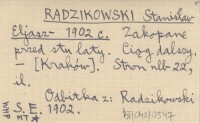 RADZIKOWSKI Stanisław
Eljasz- 1902 r. Zakopane
przed stu laty. Ciąg dalszy.
- [Kraków]. Stron nlb 22,
il.
Odbitka z: Radzikowski
S. E. 1902.
WHP
MT